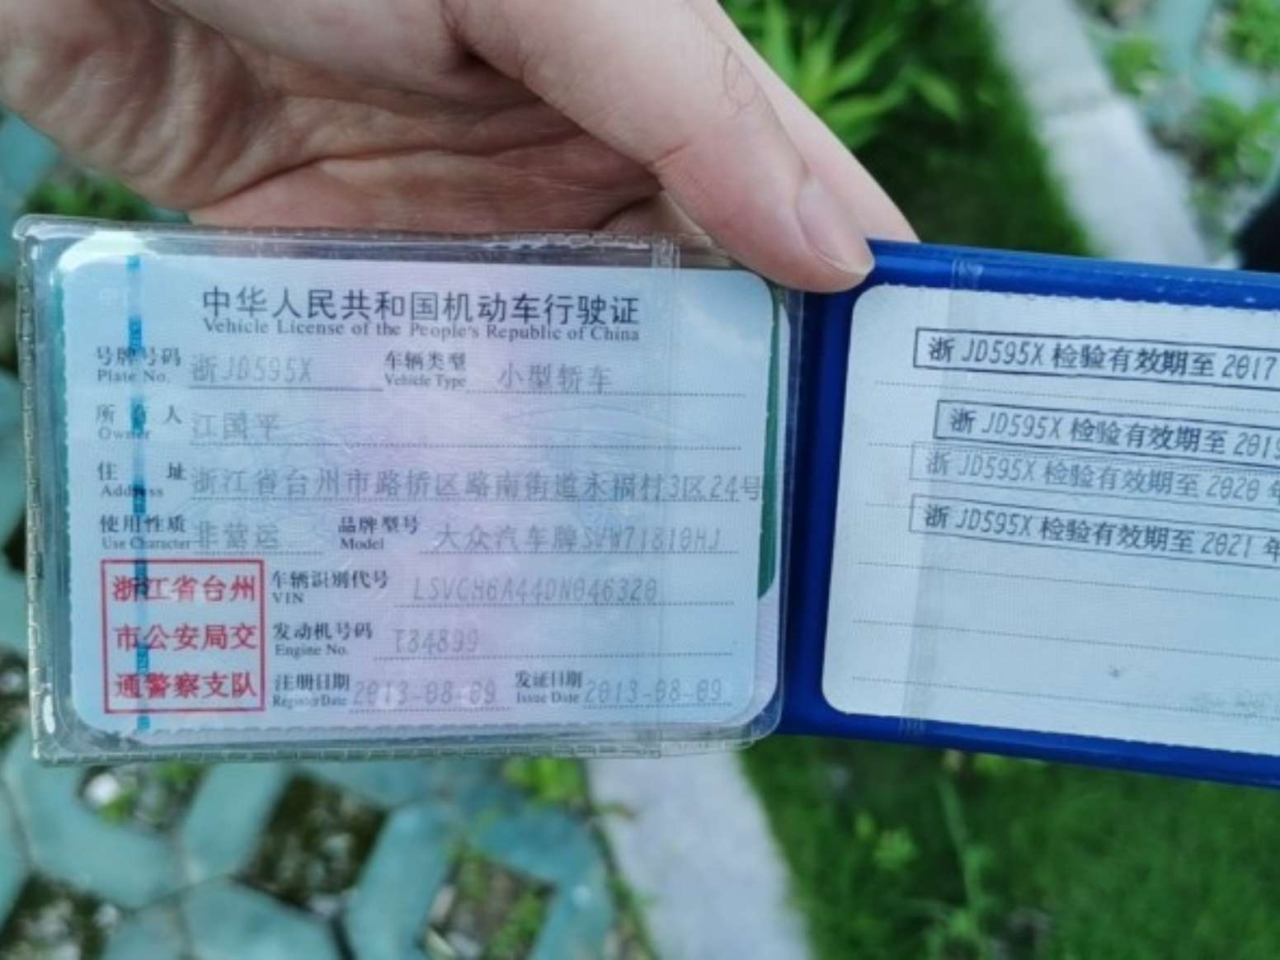 中华人民共和国机动车行驶证
Vehicle License of the People's Republic of China
号牌号码 浙JD595X 车辆类型 小型轿车
Plate No. Vehicle Type
所有人 江国平
Owner
住址 浙江省台州市路桥区路南街道永福村3区24号
Address
使用性质 非营运 品牌型号 大众汽车牌SVW71810HJ
Use Character Model
浙江省台州
市公安局交
通警察支队
车辆识别代号 LSVCH6A44DN046320
VIN
发动机号码 T34899
Engine No.
注册日期 2013-08-09 发证日期 2013-08-09
Register Date Issue Date
浙JD595X检验有效期至2017
浙JD595X检验有效期至2019
浙JD595X检验有效期至2020年
浙JD595X检验有效期至2021年